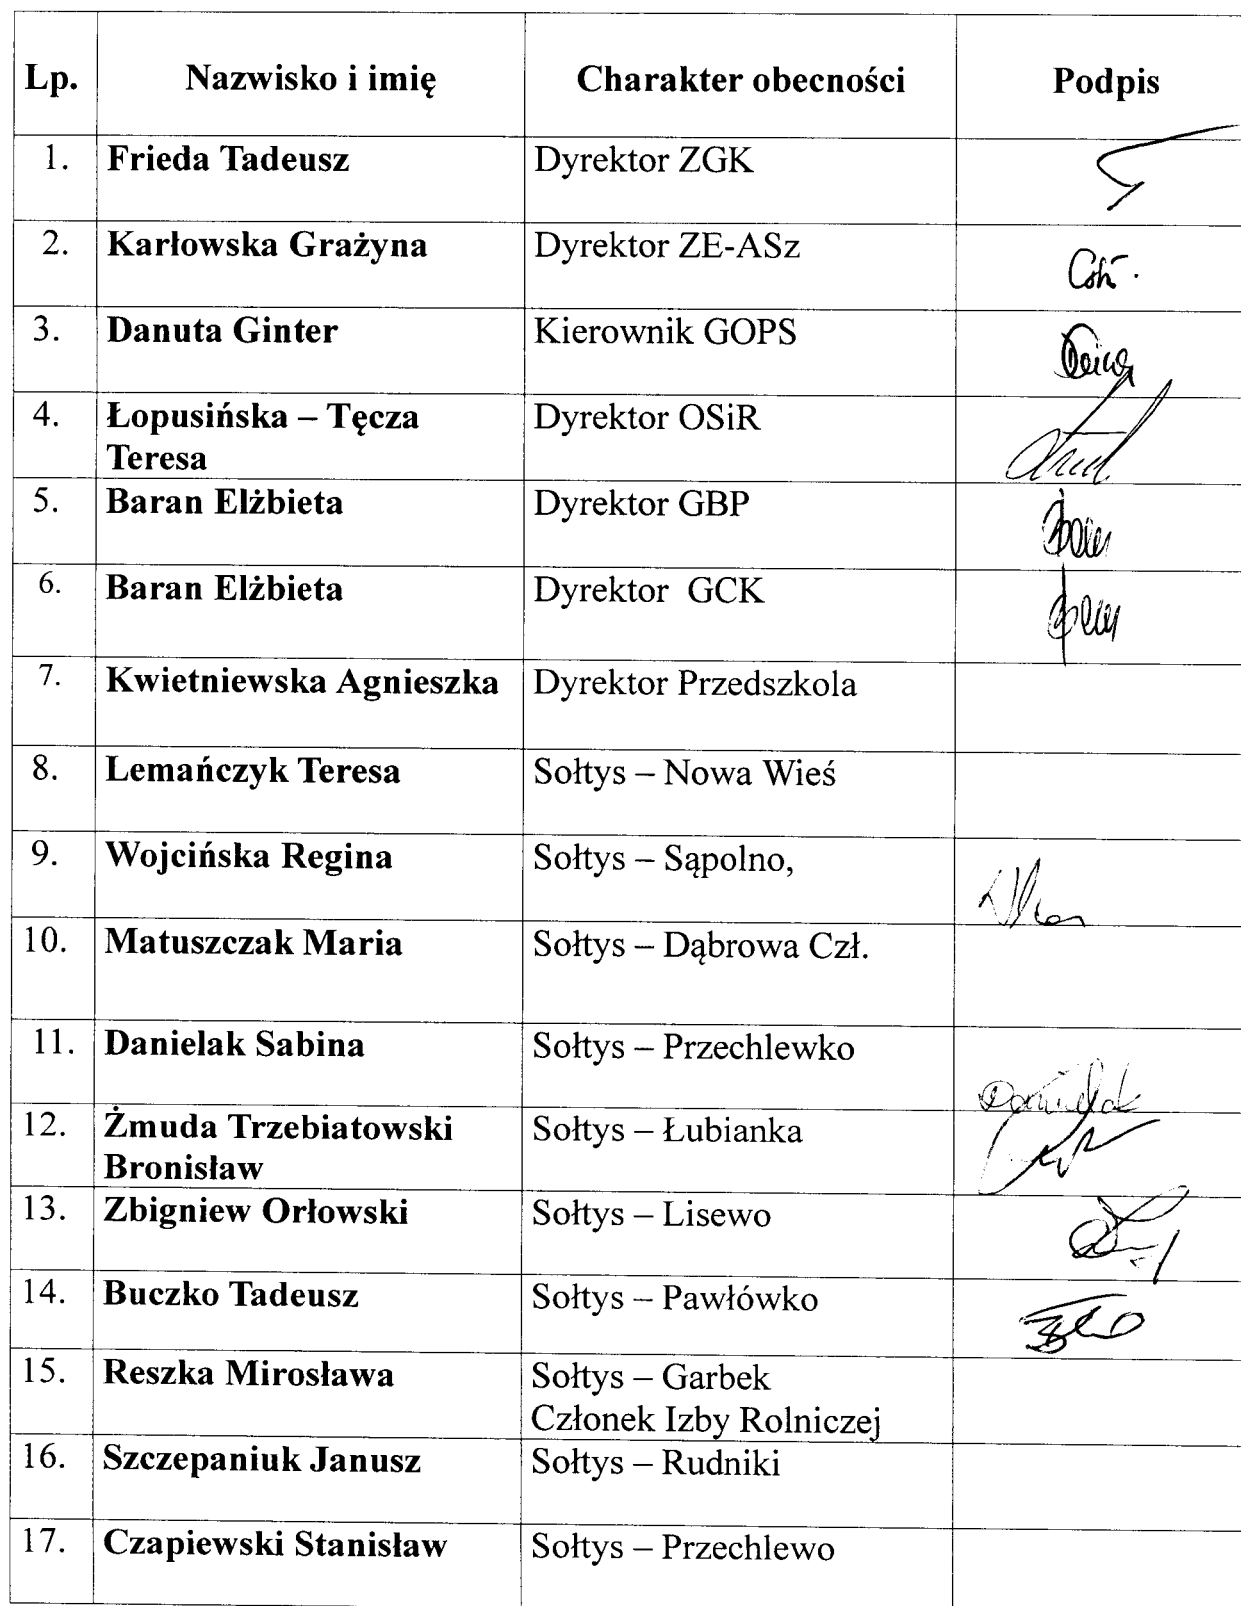 Lp. Nazwisko i imię Charakter obecności Podpis
1. Frieda Tadeusz Dyrektor ZGK
2. Karłowska Grażyna Dyrektor ZE-ASz
3. Danuta Ginter Kierownik GOPS
4. Łopusińska – Tęcza Dyrektor OSiR
Teresa
5. Baran Elżbieta Dyrektor GBP
6. Baran Elżbieta Dyrektor GCK
7. Kwietniewska Agnieszka Dyrektor Przedszkola
8. Lemańczyk Teresa Sołtys – Nowa Wieś
9. Wojcińska Regina Sołtys – Sąpolno,
10. Matuszczak Maria Sołtys – Dąbrowa Czł.
11. Danielak Sabina Sołtys – Przechlewko
Danielak
12. Żmuda Trzebiatowski Sołtys – Łubianka
Bronisław
13. Zbigniew Orłowski Sołtys – Lisewo
14. Buczko Tadeusz Sołtys – Pawłówko
15. Reszka Mirosława Sołtys – Garbek
Członek Izby Rolniczej
16. Szczepaniuk Janusz Sołtys – Rudniki
17. Czapiewski Stanisław Sołtys – Przechlewo